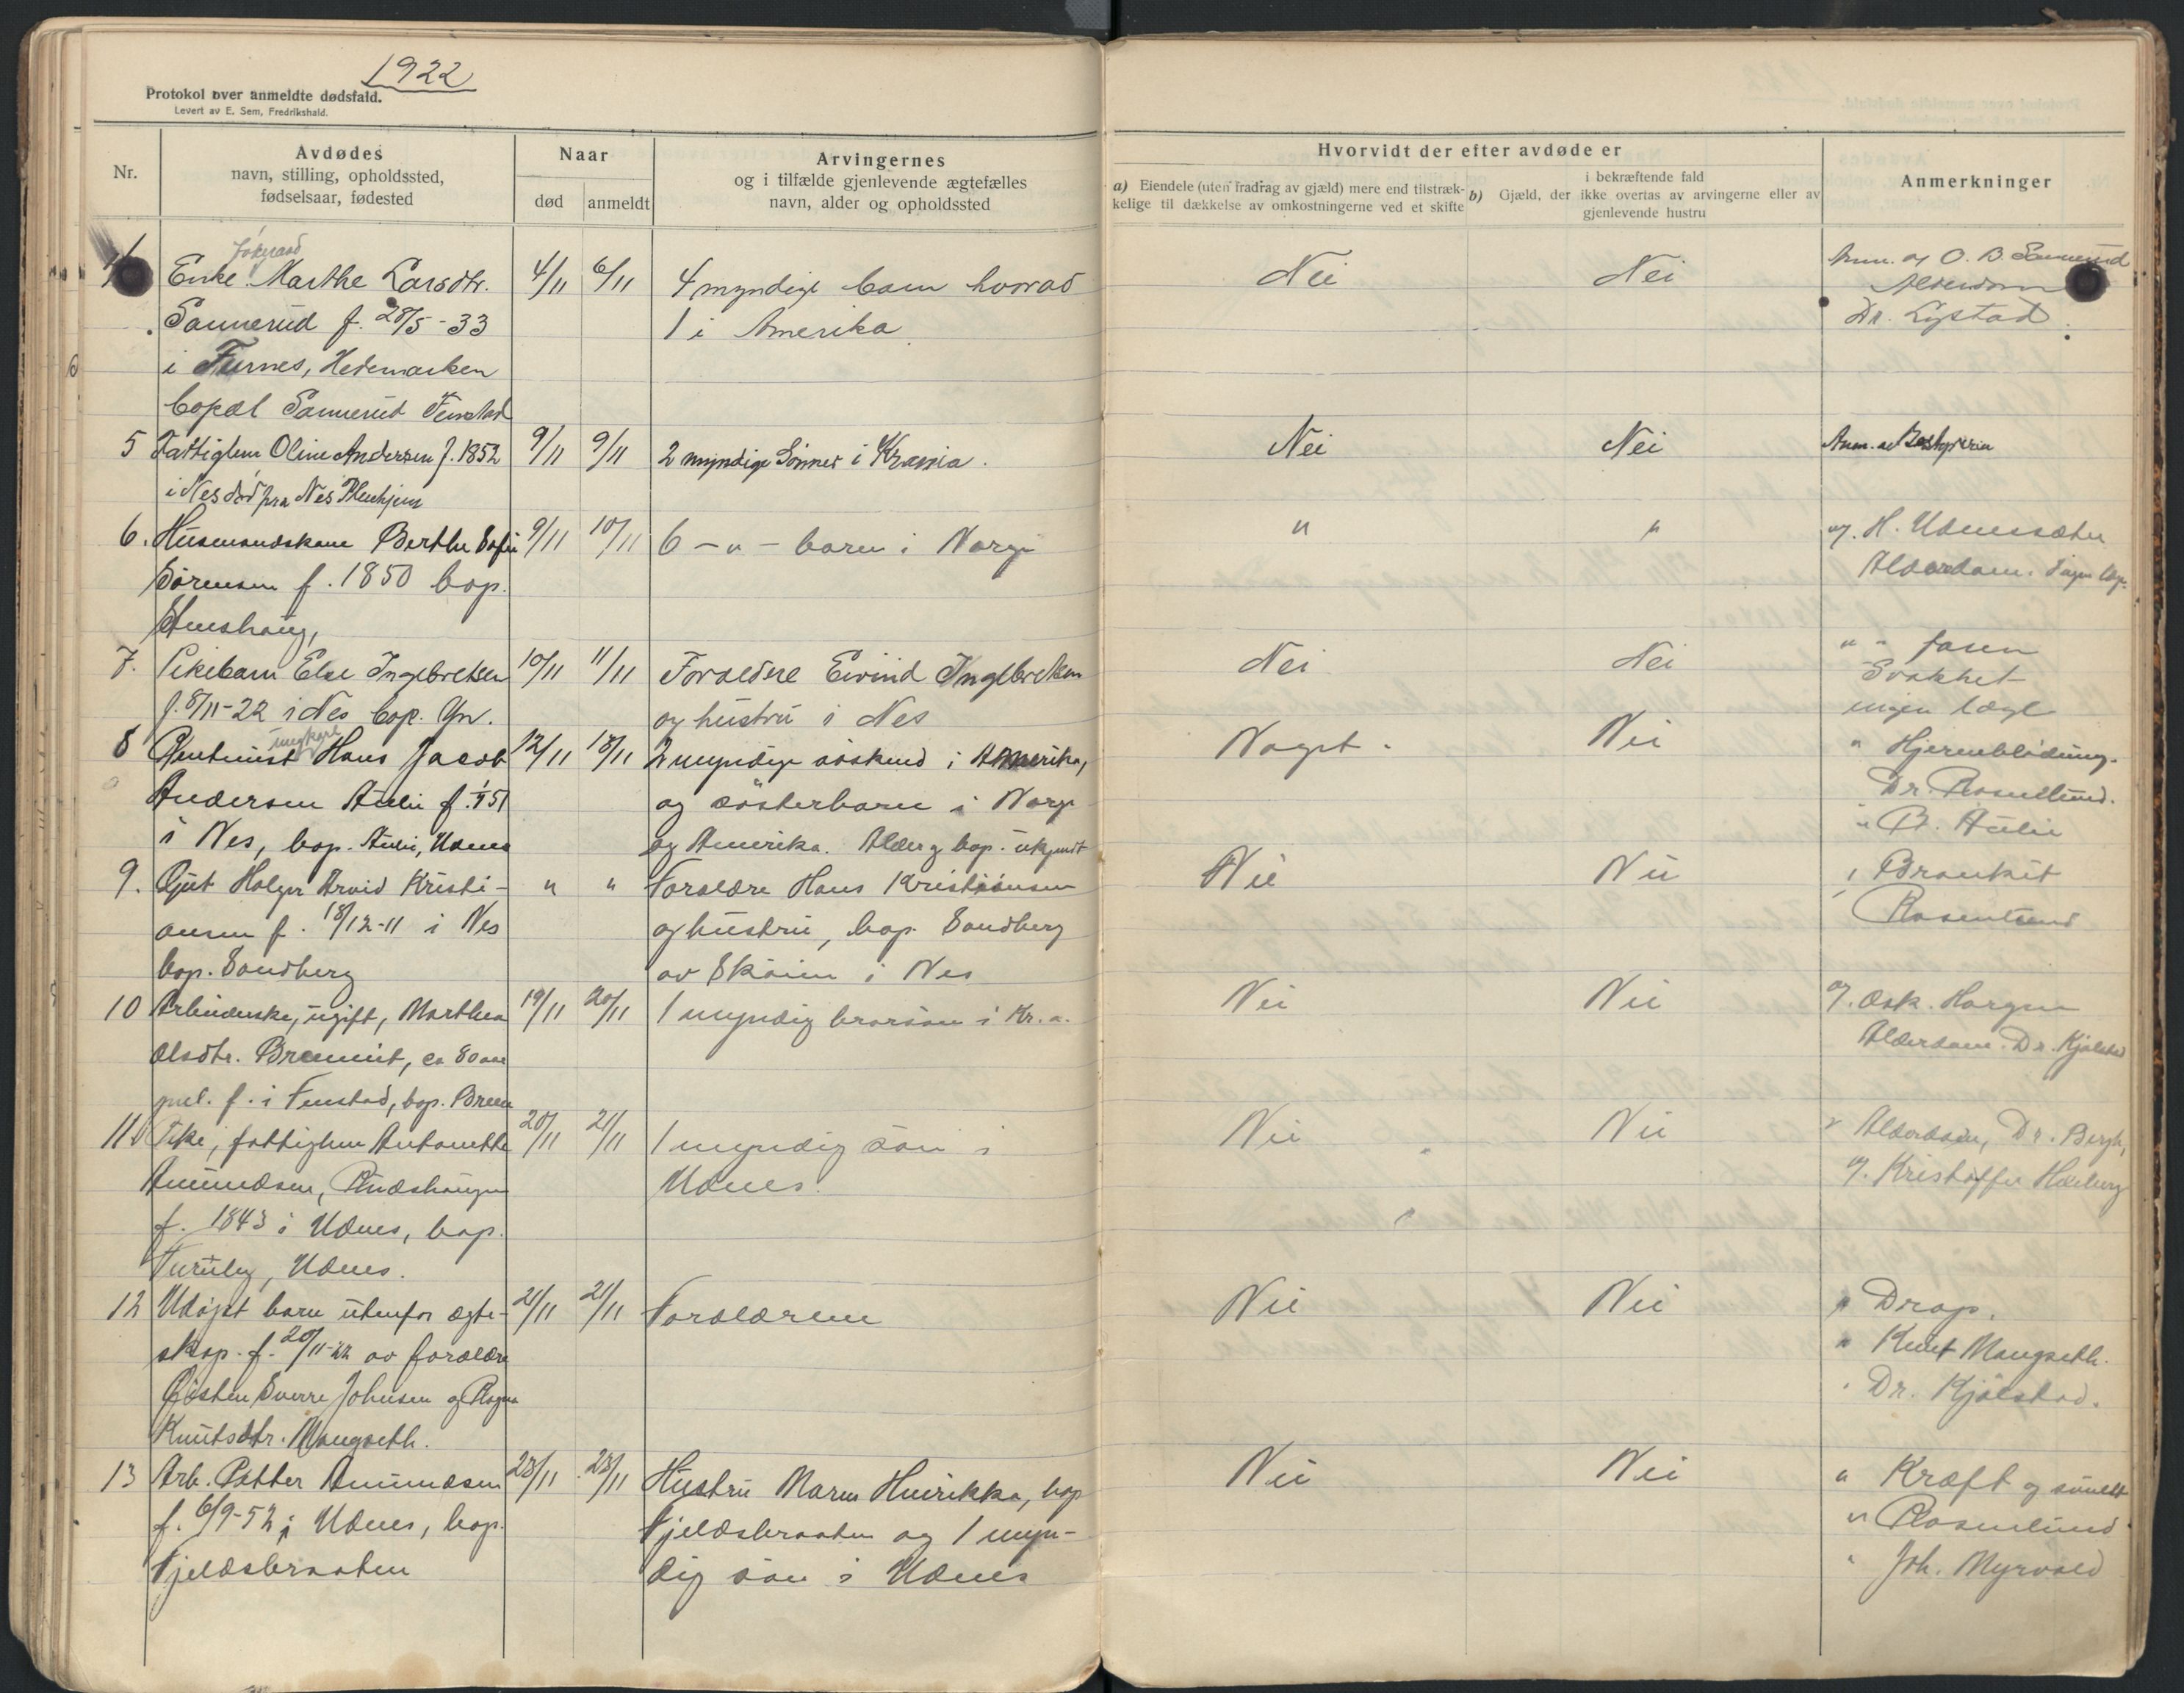 1922
Protokol over anmeldte dødsfald.
Levert av E. Sem, Fredrikshald.
Nr.
Avdødes
navn, stilling, opholdssted,
fødselsaar, fødested
Naar
død
anmeldt
Arvingernes
og i tilfælde gjenlevende ægtefælles
navn, alder og opholdssted
Hvorvidt der efter avdøde er
a) Eiendele (uten fradrag av gjæld) mere end tilstræk-
kelige til dækkelse av omkostningerne ved et skifte
i bekræftende fald
b) Gjæld, der ikke overtas av arvingerne eller av
gjenlevende hustru
Anmerkninger
Enke Marthe Larsdtr. 4/11 6/11 4 myndige barn hvorav Nei Nei Anm. af O. B. Sannerud
Sannerud f. 28/5-33 1 i Amerika Alderdom
Dr. Lystad
i Furnes, Hedemarken
bopæl Sannerud Fenstad
5 Fattiglem Oline Andersen f. 1852 9/11 9/11 2 myndige Sønner i Krania. Nei Nei Anm. av Bestyrerin
i Nes død fra Nes Pleiehjem
6. Husmandskone Berthe Sofie 9/11 10/11 6 - " - barn i Norge " " af. H. Udnessæter
Sörensen f. 1850 bop. Alderdom. Ingen læge
7. Pikebarn Else Ingebretsen 10/11 11/11 Forældre Eivind Ingebretsen Nei Nei " " faren
Svakhet
f. 8/11-22 i Nes bop. og hustru i Nes ingen læge
ungkarl
8 Hans Jacob 12/11 18/11 2 myndige söskend i Amerika, Noget. Nei " Hjerneblödning.
Andersen Aulie f. 51 og sösterbarn i Norge Dr. Rosenlund.
i Nes, bop. Aulie, Udnes og Amerika. Alder og bop. ukjendt " B. Aulie
9. Gut Holger Arvid Kristi- " " Forældre Hans Kristiansen Nei Nei Bronkit
ansen f. 18/12-11 i Nes og hustru, bop. Sandberg Rosenlund
bop. Sandberg av Sköien i Nes
10 Arbeiderske, ugift, Marthea 19/11 20/11 1 myndig brorsön i Kr.a. Nei Nei af. Osk. Horgen
Olsdtr. ca 80 aar Alderdom. Dr. Kjölstad
gml. f. i Fenstad, bop.
11 Pike, fattiglem Antonette 20/11 21/11 1 myndig sön i Nei Nei " Alderdom, Dr. Bergh,
Amundsen, Udnes. af. Kristoffer
f. 1843 i Udnes, bop.
Udnes.
12 Udöpt barn utenfor ægte- 21/11 21/11 Forældrene Nei Nei " Drap.
skap. f. 20/11-22 av forældre " Knut Mangseth.
Öisten Sverre Johnsen og Ragna " Dr. Kjölstad.
Knutsdtr. Mangseth.
13 Arb. Petter Amundsen 23/11 23/11 Hustru Maren Henrikka, bop Nei Nei " Kræft
f. 6/9-52 i Udnes, bop. Fjeldsbraaten og 1 myn- " Rosenlund
Fjeldsbraaten dig sön i Udnes " Joh. Myrvold